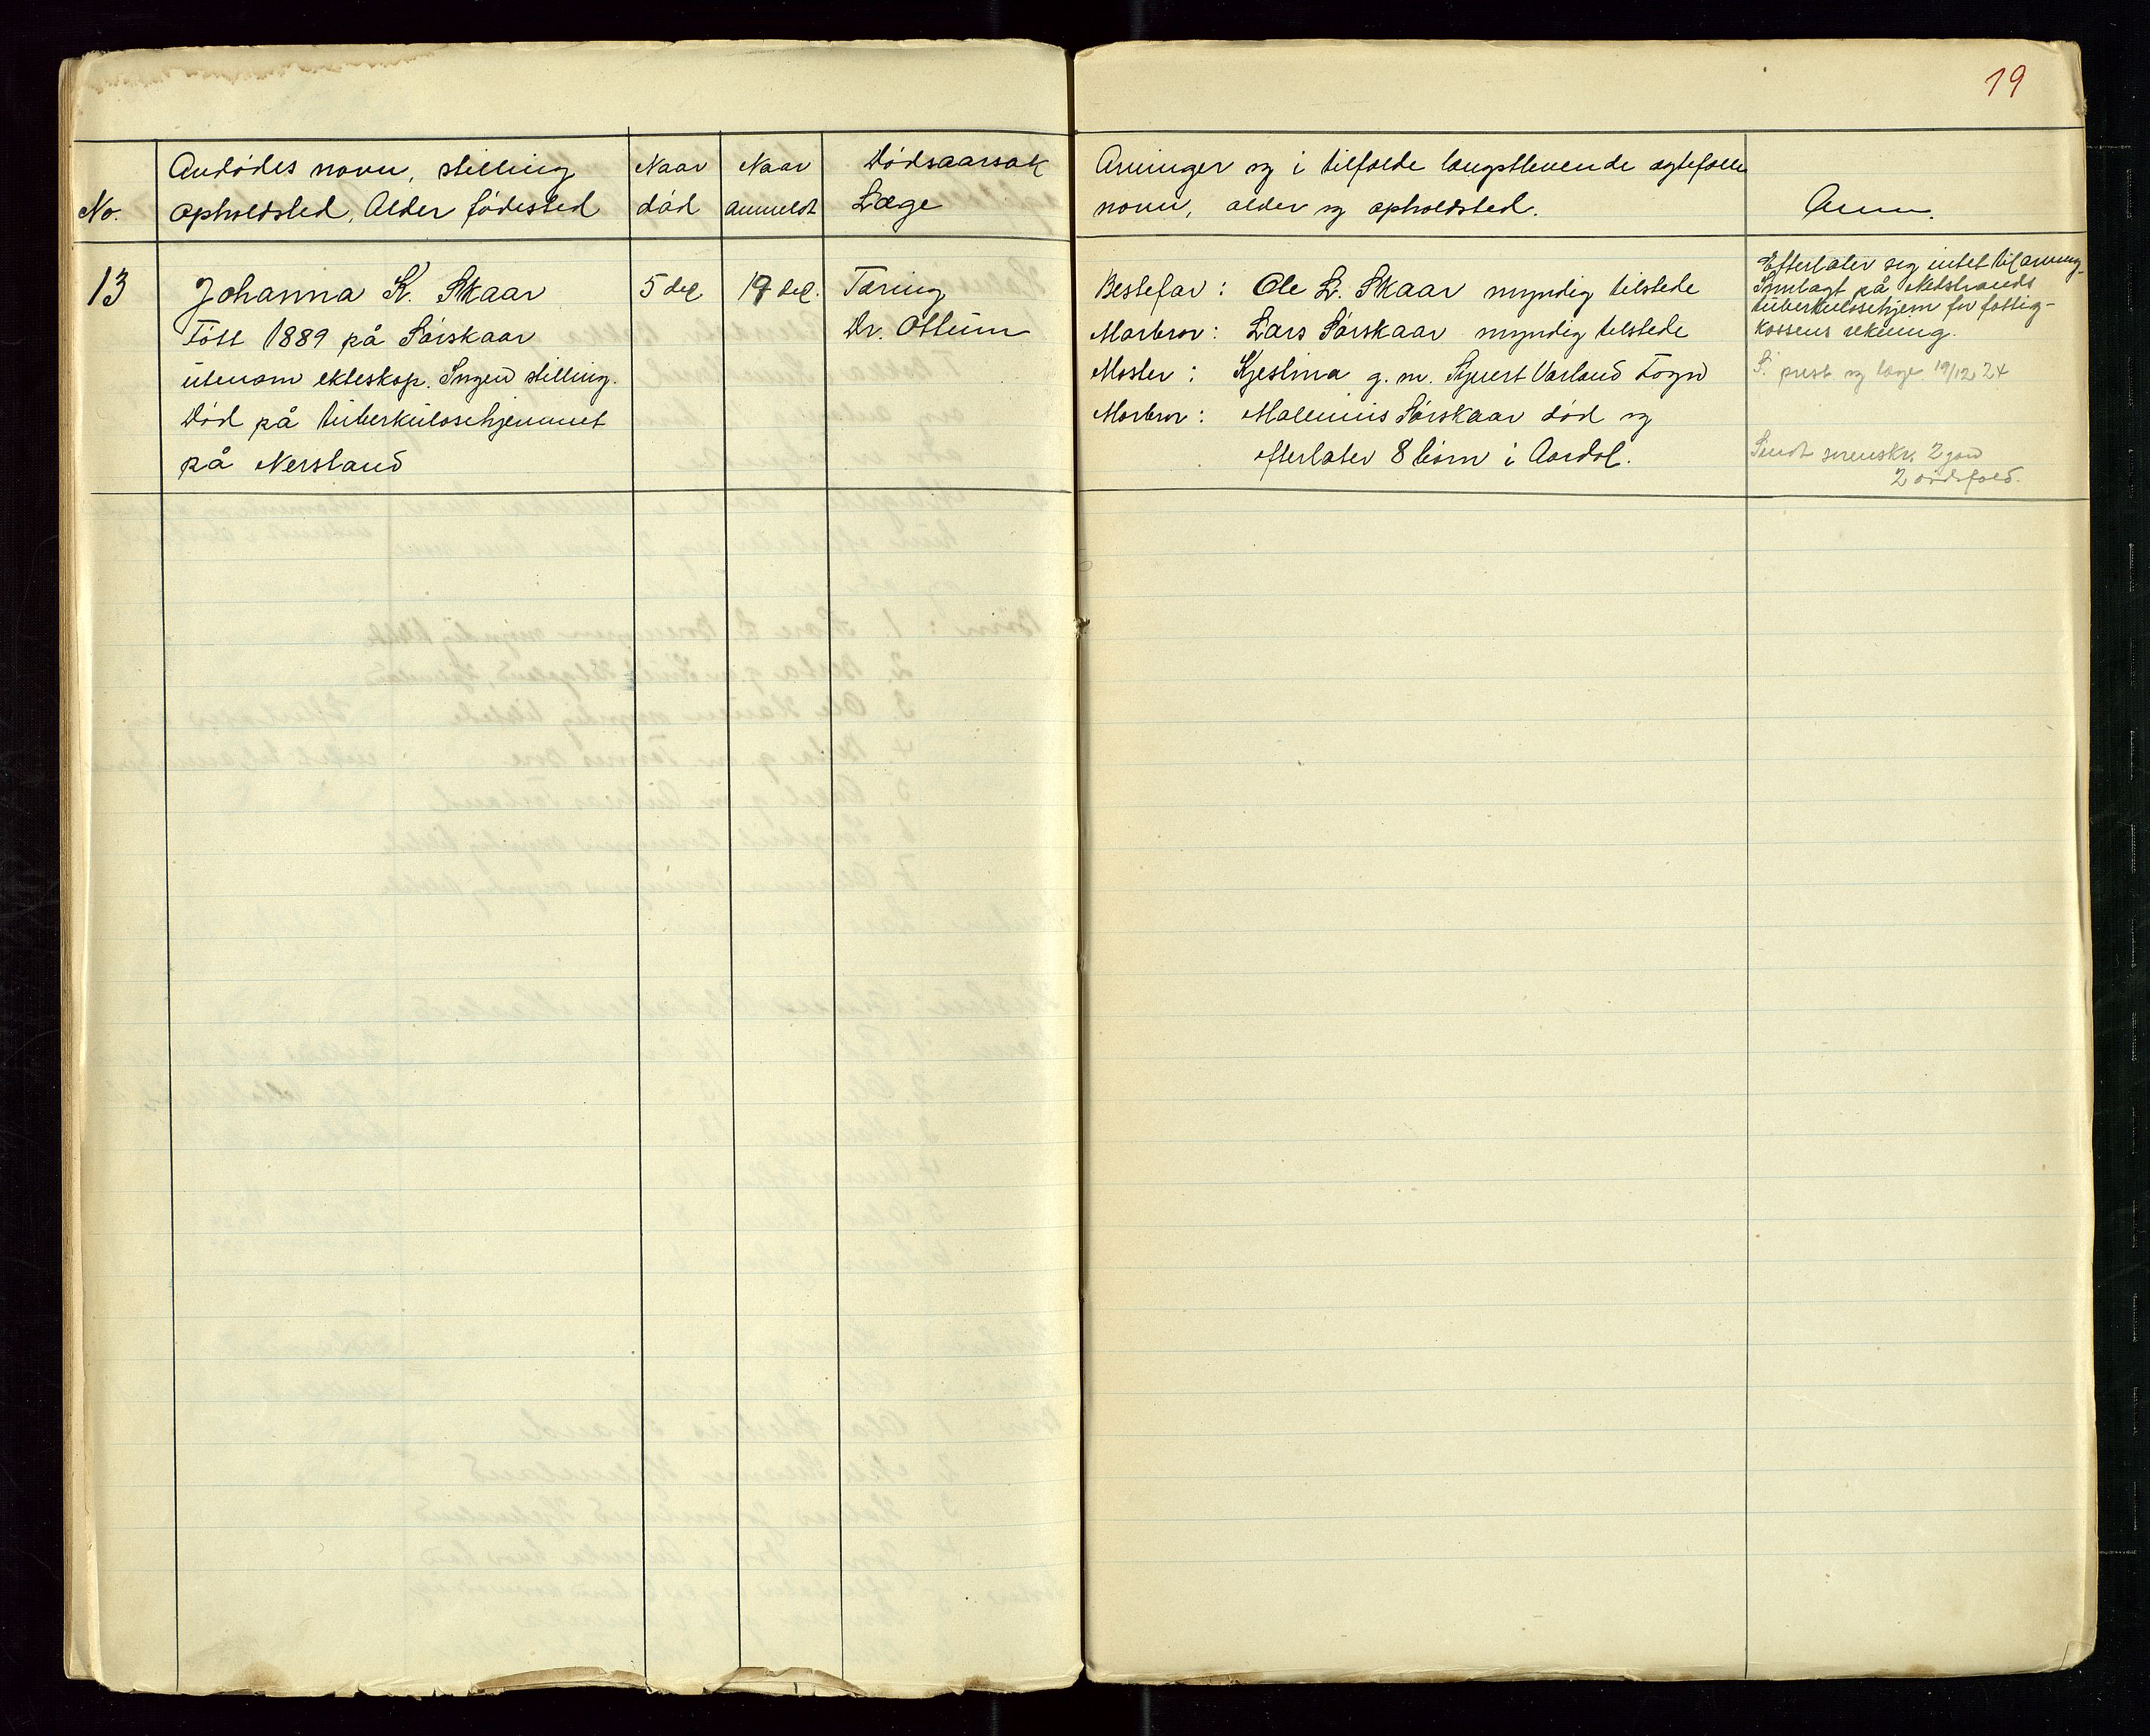 19
No.
Avdødes navn, stilling
opholdsted, Alder fødested
Naar
død
Naar
anmeldt
Dødsaarsak
Læge
Arvinger og i tilfælde længstlevende ægtefælles
navn, alder og opholdsted.
Anm.
13
Johanna K. Skaar
Født 1889 på Sørskaar
utenom ekteskap. Ingen stilling.
Død på tuberkulosehjemmet
på Nersland
5 des
19 des.
Tæring
Dr. Ottum
Bestefar : Ole L. Skaar myndig tilstede
Morbror : Lars Sørskaar myndig tilstede
Moster : Kjestina g. m. Sjuert Varland Fogn
Morbror : Malenius Sørskaar død og
efterlater 8 børn i Aardal.
Efterlater seg intet til arving
Innlagt på Nedstrands
tuberkulosehjem for fattig-
kassens rekning.
S. prest og læge 19/12 24
Sendt sorenskr. 2 jan